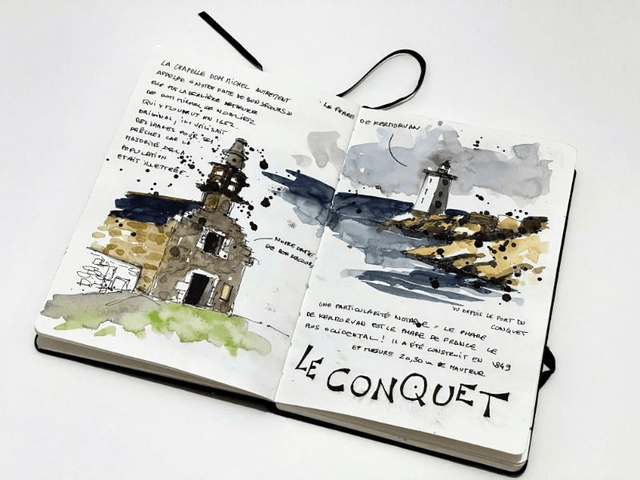 LA CHAPELLE DOM MICHEL AUTREMENT
APPELÉE « NOTRE DAME DE BON SECOURS »
ELLE FUT LA DERNIÈRE DEMEURE
DE DOM MICHEL LE NOBLETZ
QUI Y MOURUT EN 1652
ORIGINAL, IL UTILISAIT
DES IMAGES POUR SES
PRÊCHES CAR LA
MAJORITÉ DE LA
POPULATION
ÉTAIT ILLETTRÉE.
NOTRE DAME
DE BON SECOURS
LE PHARE DE KERMORVAN
VU DEPUIS LE PORT DU
CONQUET
UNE PARTICULARITÉ NOTABLE : LE PHARE
DE KERMORVAN EST LE PHARE DE FRANCE LE
PLUS OCCIDENTAL ! IL A ÉTÉ CONSTRUIT EN 1849
ET MESURE 20,30 m DE HAUTEUR.
LE CONQUET